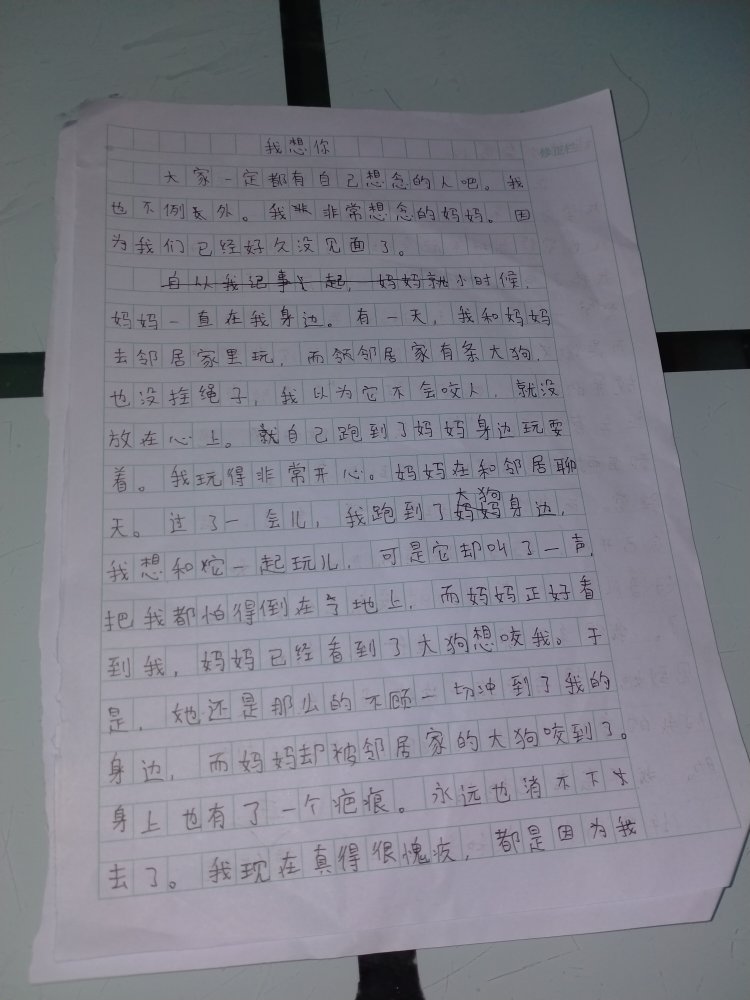 我想你
大家一定都有自己想念的人吧。我
也不例外。我非常想念的妈妈。因
为我们已经好久没见面了。
自从我纪事起，妈妈就小时候，
妈妈一直在我身边。有一天，我和妈妈
去邻居家里玩，而邻居家有条大狗，
也没拴绳子，我以为它不会咬人，就没
放在心上。就自己跑到了妈妈身边玩耍
着。我玩得非常开心。妈妈在和邻居聊
大狗
天。过了一会儿，我跑到了妈妈身边，
我想和它一起玩儿，可是它却叫了一声，
把我都怕得倒在地上，而妈妈正好看
到我，妈妈已经看到了大狗想咬我。于
是，她还是那么的不顾一切冲到了我的
身边，而妈妈却被邻居家的大狗咬到了。
身上也有了一个疤痕。永远也消不下
去了。我现在真得很愧疚，都是因为我